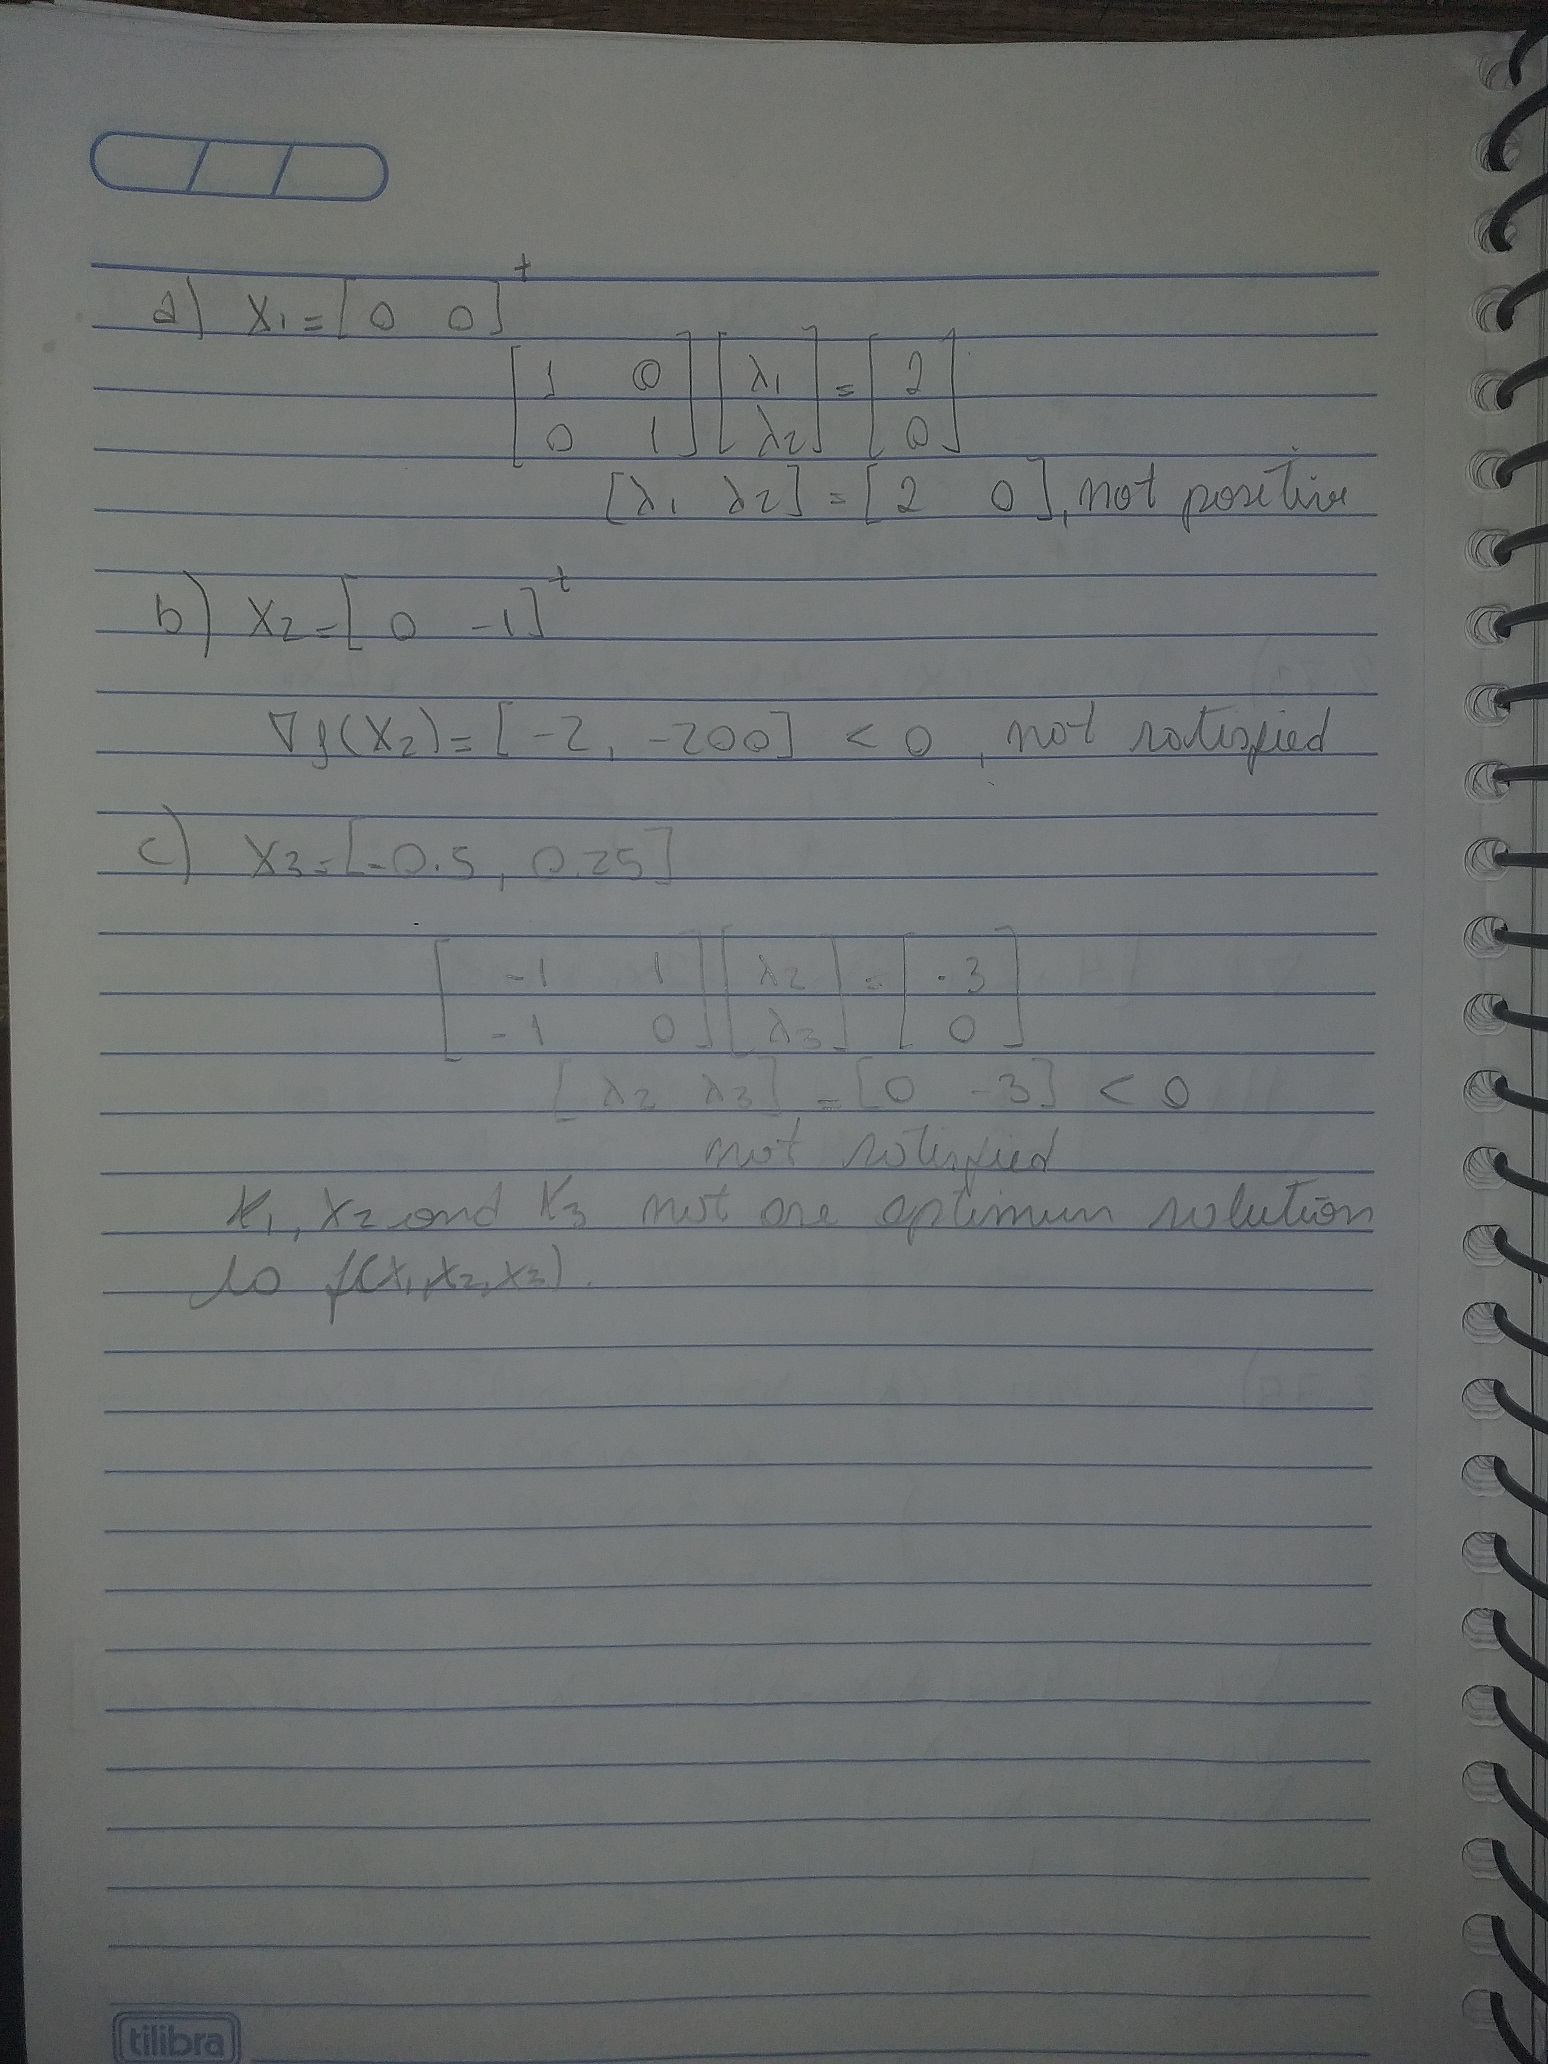 a) X1 = [ 0 0 ]^t
[ 1 0 ] [ λ1 ] = [ 2 ]
[ 0 1 ] [ λ2 ] [ 0 ]
[ λ1 λ2 ] = [ 2 0 ], not positive
b) X2 = [ 0 -1 ]^t
∇f(X2) = [ -2, -200 ] < 0, not satisfied
c) X3 = [ -0.5, 0.25 ]
[ -1 1 ] [ λ2 ] = [ -3 ]
[ -1 0 ] [ λ3 ] [ 0 ]
[ λ2 λ3 ] = [ 0 -3 ] < 0
not satisfied
X1, X2 and X3 not are optimum solution
to f(X1, X2, X3).
tilibra